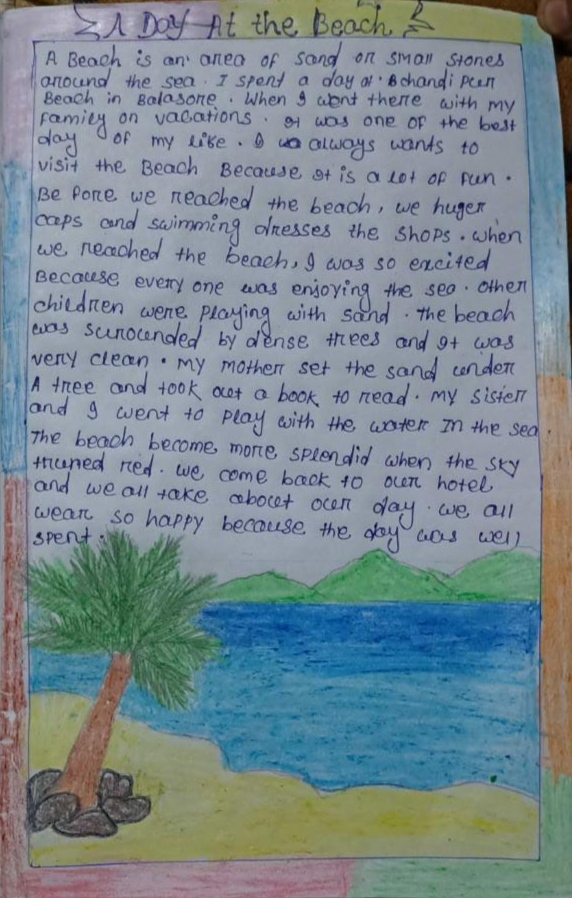 A Day At the Beach
A Beach is an area of sand or small stones
around the sea. I spent a day at Bchandi Purr
Beach in Balasore. When I went there with my
family on vacations. It was one of the best
day of my like. I always wants to
visit the Beach Because It is a lot of fun.
Be fore we reached the beach, we huger
caps and swimming dresses the shops. when
we reached the beach, I was so excited
Because every one was enjoying the sea. other
children were playing with sand. the beach
was surounded by dense trees and It was
very clean. my mother set the sand under
A tree and took out a book to read. my sister
and I went to play with the water In the sea.
The beach become more splendid when the sky
truned red. we come back to our hotel
and we all take about our day. we all
wear so happy because the day was well
spent.